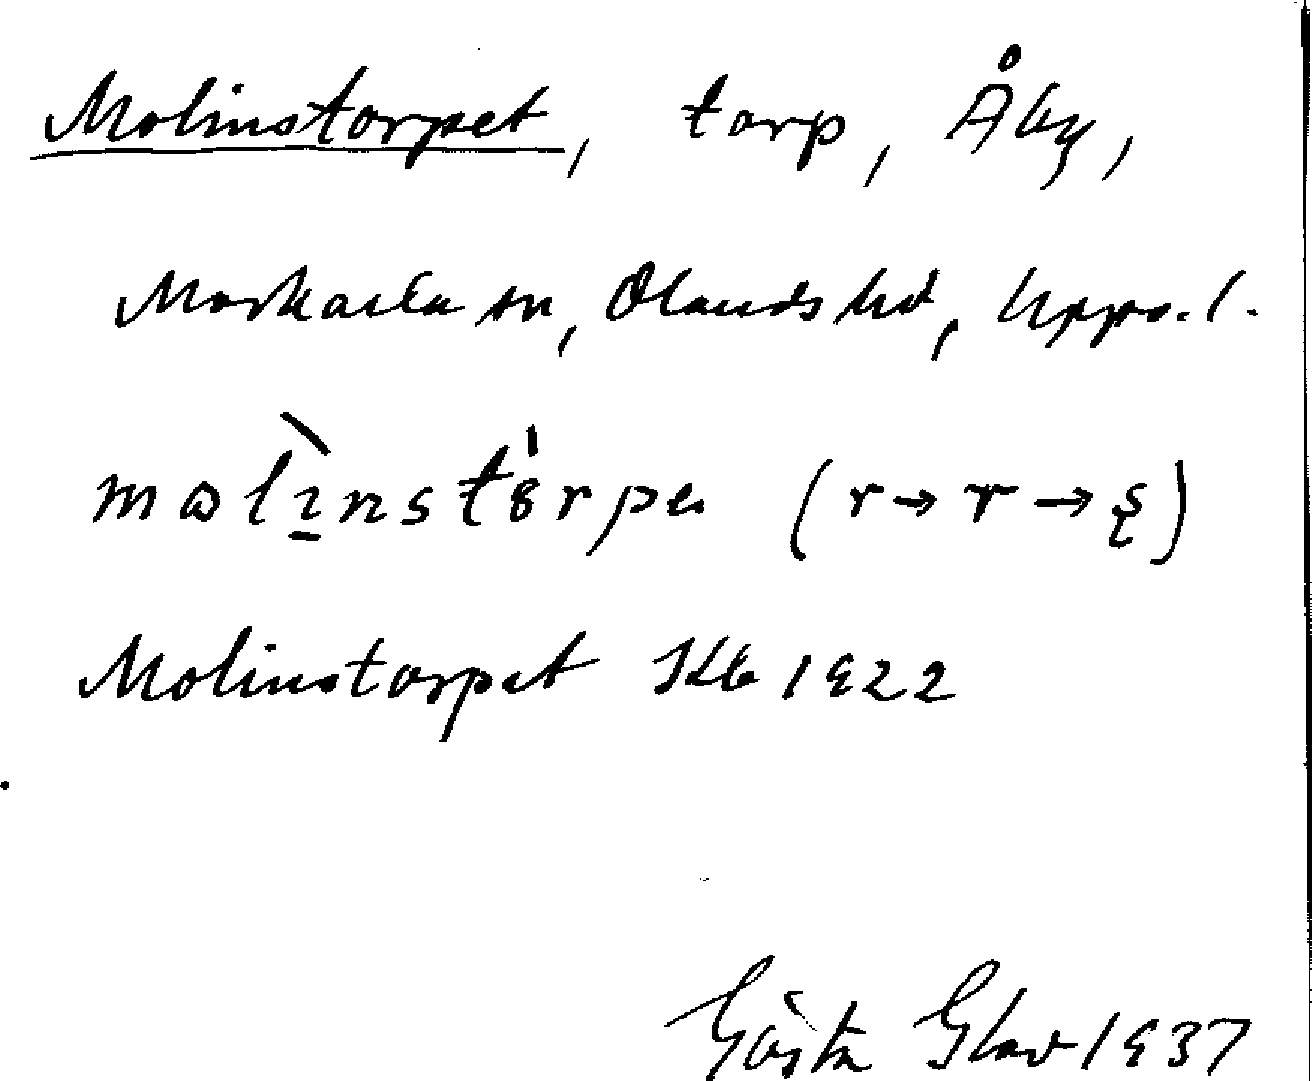 Molinstorpet, torp, Åby,
Morkarla sn, Olands hd, Upps. l.
Molinstorpet Skb 1922
Gösta Glav 1937